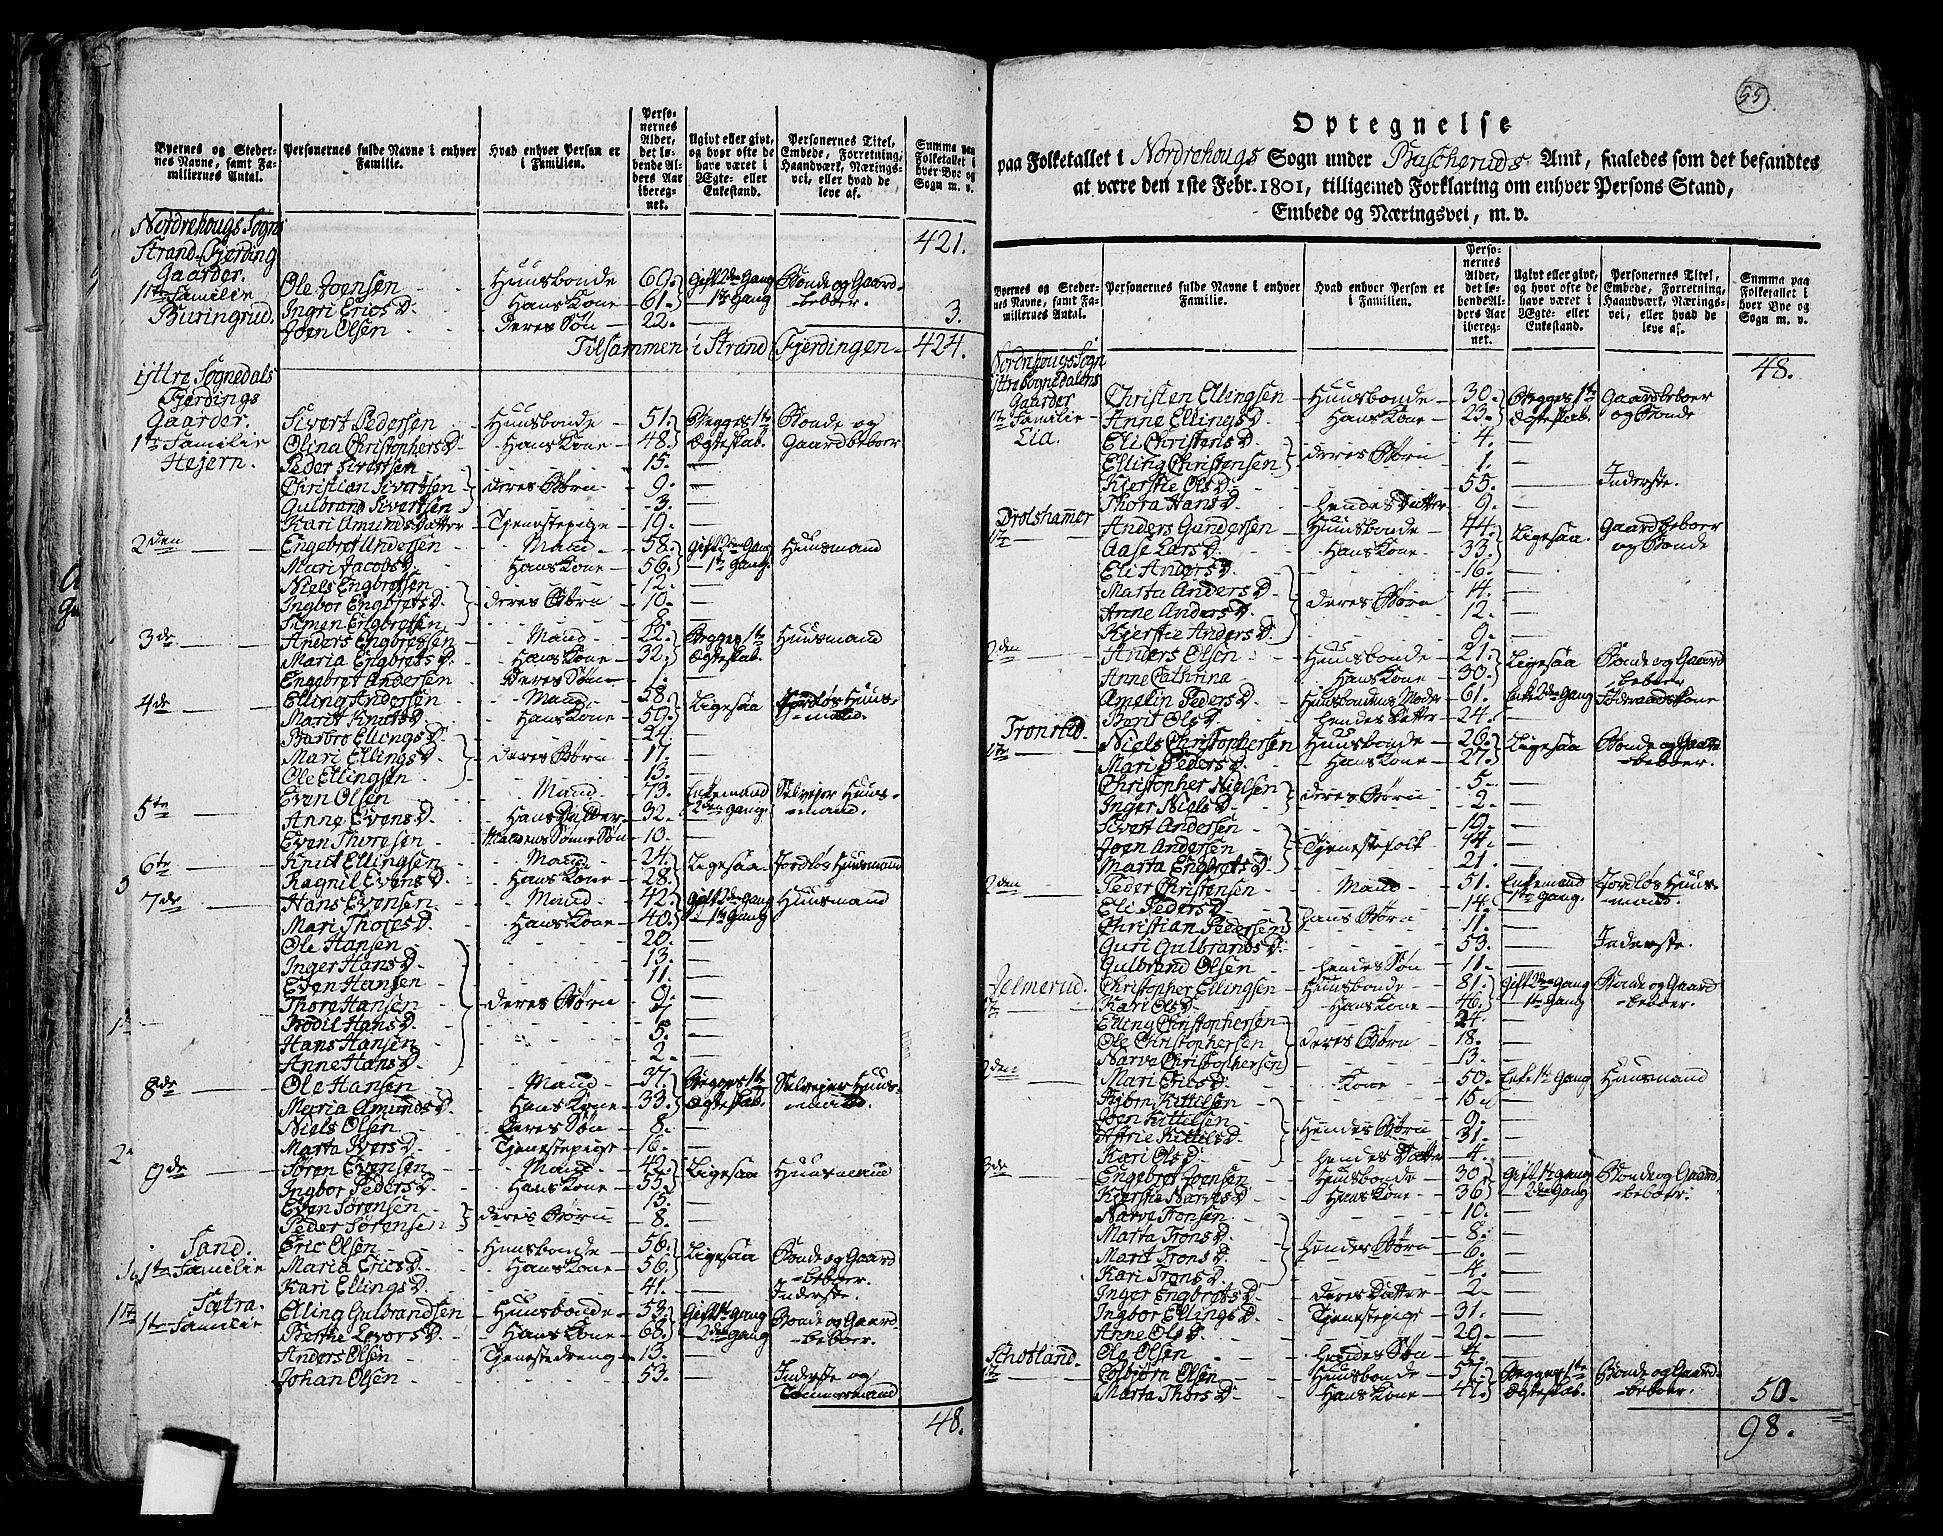 Byernes og Steder-
nes Navne, samt Fa-
miliernes Antal.
Personernes fulde Navne i enhver
Familie.
Hvad enhver Person er
i Familien.
Perso-
nernes
Alder,
det lø-
bende Al-
ders Aar
ibereg-
net.
Ugivt eller givt,
og hvor ofte de
have været i
Ægte- eller
Enkestand.
Personernes Titel,
Embede, Forretning,
Haandværk, Nærings-
vei, eller hvad de
leve af.
Summa paa
Folketallet i
hver Bye og
Sogn m. v.
Nordrehougs Sogn
Strand-Fjerding 421.
Gaarder.
11te Familie Ole Joensen Huusbonde 69. Gift 2den Gang Bonde og Gaard-
Buringrud. Ingri Erics D. Hans Kone 61. 1te Gang beboer.
Joen Olsen Deres Søn 22. — 3.
Tilsammen i Strand Fjerdingen 424.
ijttre Sognedals
Fjerdings
Gaarder. Sivert Pedersen Huusbonde 51. Begges 1te Bonde og
1te Familie Olina Christophers D. Hans Kone 48. Ægteskab. Gaardbeboer
Hejern. Peder Sivertsen 15. —
Christian Sivertsen deres Børn 9. —
Gulbrand Sivertsen 3. —
Kari Amunds Datter Tjenestepige 19. —
2den Engebret Andersen Mand 58. Gift 2den Gang Huusmand
Mari Jacobs D. Hans Kone 56. 1te Gang.
Niels Engbretsen 12. —
Ingbor Engbrets D. deres Børn 10. —
Simen Engbretsen 8. —
3de Anders Engbretsen Mand 22. Begges 1te Huusmand
Maria Engbrets D. Hans Kone 32. Ægteskab.
Engebret Andersen Deres Søn 1. —
4de Elling Andersen Mand 58. Ligesaa Jordløs Huus-
Marit Knuts D. Hans Kone 59. mand.
Barbro Ellings D. 24. —
Mari Ellings D. deres Børn 17. —
Ole Ellingsen 13. —
5te Even Olsen Mand 73. Enkemand Selvejer Huus-
Anne Evens D. Hans Datter 32. 2den Gang. mand.
Even Thoresen Mandens Sønne Søn 10. —
6te Knut Ellingsen Mand 24. Ligesaa Jordløs Huusmand
Ragnil Evens D. Hans Kone 28.
7de Hans Evensen Mand 42. Gift 2den Gang Huusmand
Mari Thores D. Hans Kone 40. 1te Gang
Ole Hansen 20. —
Inger Hans D. 13. —
Even Hansen 11. —
Thore Hansen deres Børn 9. —
Bodil Hans D. 7. —
Hans Hansen 5. —
Anne Hans D. 2. —
8de Ole Hansen Mand 37. Begges 1te Selvejer Huus-
Maria Amunds D. Hans Kone 33. Ægteskab. mand.
Niels Olsen Deres Søn 8. —
Marta Ivers D. Tjenestepige 16. —
9de Søren Evensen Mand 42. Ligesaa Huusmand
Ingbor Peders D. Hans Kone 55.
Even Sørensen 15. —
Peder Sørensen deres Børn 8. —
Sand. Eric Olsen Huusbonde 56. Ligesaa Bonde og Gaard
1te Familie Maria Erics D. Hans Kone 56. beboer.
Kari Ellings D. 41. — Inderste.
Sætra. Elling Gulbrandsen Huusbonde 53. Gift 1te gang Bonde og Gaard
1te Familie Berthe Levors D. Hans Kone 60. 2den gang beboer.
Anders Olsen Tjenestedreng 13. —
Johan Olsen 53. Inderste og
Tømmermand
48.
55
Optegnelse
paa Folketallet i Nordrehougs Sogn under Buscheruds Amt, saaledes som det befandtes
at være den 1ste Febr. 1801, tilligemed Forklaring om enhver Persons Stand,
Embede og Næringsvei, m. v.
Byernes og Steder-
nes Navne, samt Fa-
miliernes Antal.
Personernes fulde Navne i enhver
Familie.
Hvad enhver Person er i
Familien.
Perso-
nernes
Alder,
det lø-
bende Al-
ders Aar
ibereg-
net.
Ugivt eller givt,
og hvor ofte de
have været i
Ægte- eller
Enkestand.
Personernes Titel,
Embede, Forretning,
Haandværk, Nærings-
vei, eller hvad de
leve af.
Summa paa
Folketallet i
hver Bye og
Sogn m. v.
Nordrehougs Sogn 48.
ijttre Sognedalens
Gaarder Christen Ellingsen Huusbonde 30. Begges 1te Gaardbeboer
1te Familie Anne Ellings D. Hans Kone 23. Ægteskab. og Bonde
Lia. Eli Christens D. 4. —
Elling Christensen deres Børn 1. —
Kjerstie Ols D. 55. — Inderste.
Thora Hans D. Hendes Datter 9. —
Drolshamer Anders Gundersen Huusbonde 44. Ligesaa. Gaardbeboer
1te Aase Lars D. Hans Kone 33. og Bonde
Eli Anders D. 16. —
Marta Anders D. 14. —
Anne Anders D. deres Børn 12. —
Kjerstie Anders D. 9. —
2den Anders Olsen Huusbonde 21. Ligesaa Bonde og Gaard
Anne Cathrina Hans Kone 30. beboer
Amelin Peders D. Huusbondens Moder 61. Enke 2den Gang Føderaadskone
Berit Ols D. hendes Datter 24. —
Tronrud. Niels Christophersen Huusbonde 26. Ligesaa Bonde og Gaard
1te Mari Peders D. Hans Kone 27. beboer.
Christopher Nielsen 5. —
Inger Niels D. deres Børn 2. —
Sivert Andersen 19. —
Joen Andersen Tjenestefolk 44. —
Marta Engbrets D. 21. —
2den Peder Christensen Mand 51. Enkemand Jordløs Huus-
Eli Peders D. 14. 1te Gang. mand.
Christian Pedersen hans Børn 11. —
Guri Gulbrands D. 53. — Inderste.
Gulbrand Olsen hendes Søn 11. —
Jelmerud. Christopher Ellingsen Huusbonde 81. Gift 2den Gang Bonde og Gaard
1te Kari Ols D. Hans Kone 46. 1te Gang beboer.
Elling Christophersen 24. —
Ole Christophersen deres Børn 18. —
Narve Christophersen 13. —
2den Mari Erics D. Kone 50. Enke 1te Gang Huusmand
Bjørn Kittilsen 15. —
Joen Kittilsen Hendes Børn 9. —
Astrie Kittils D. 31. —
Kari Ols D. hendes Datter 4. —
3de Engebret Joensen Huusbonde 30. Gift 1te Gang Bonde og Gaard
Kjerstie Narves D. Hans Kone 36. 2den Gang beboer.
Narve Tronsen 10. —
Marta Trons D. 8. —
Marit Trons D. Hendes Børn 6. —
Kari Trons D. 4. —
Inger Engbrets D. deres Datter 2. —
Ingbor Ellings D. Tjenestepige 31. —
Anne Ols D. 29. —
Schotland. Ole Olsen hendes Søn 4. —
1te Colbjørn Olsen Huusbonde 57. Begges 1te Bonde og Gaard-
Marta Thors D. Hans Kone 47. Ægteskab. beboer.
50.
98.